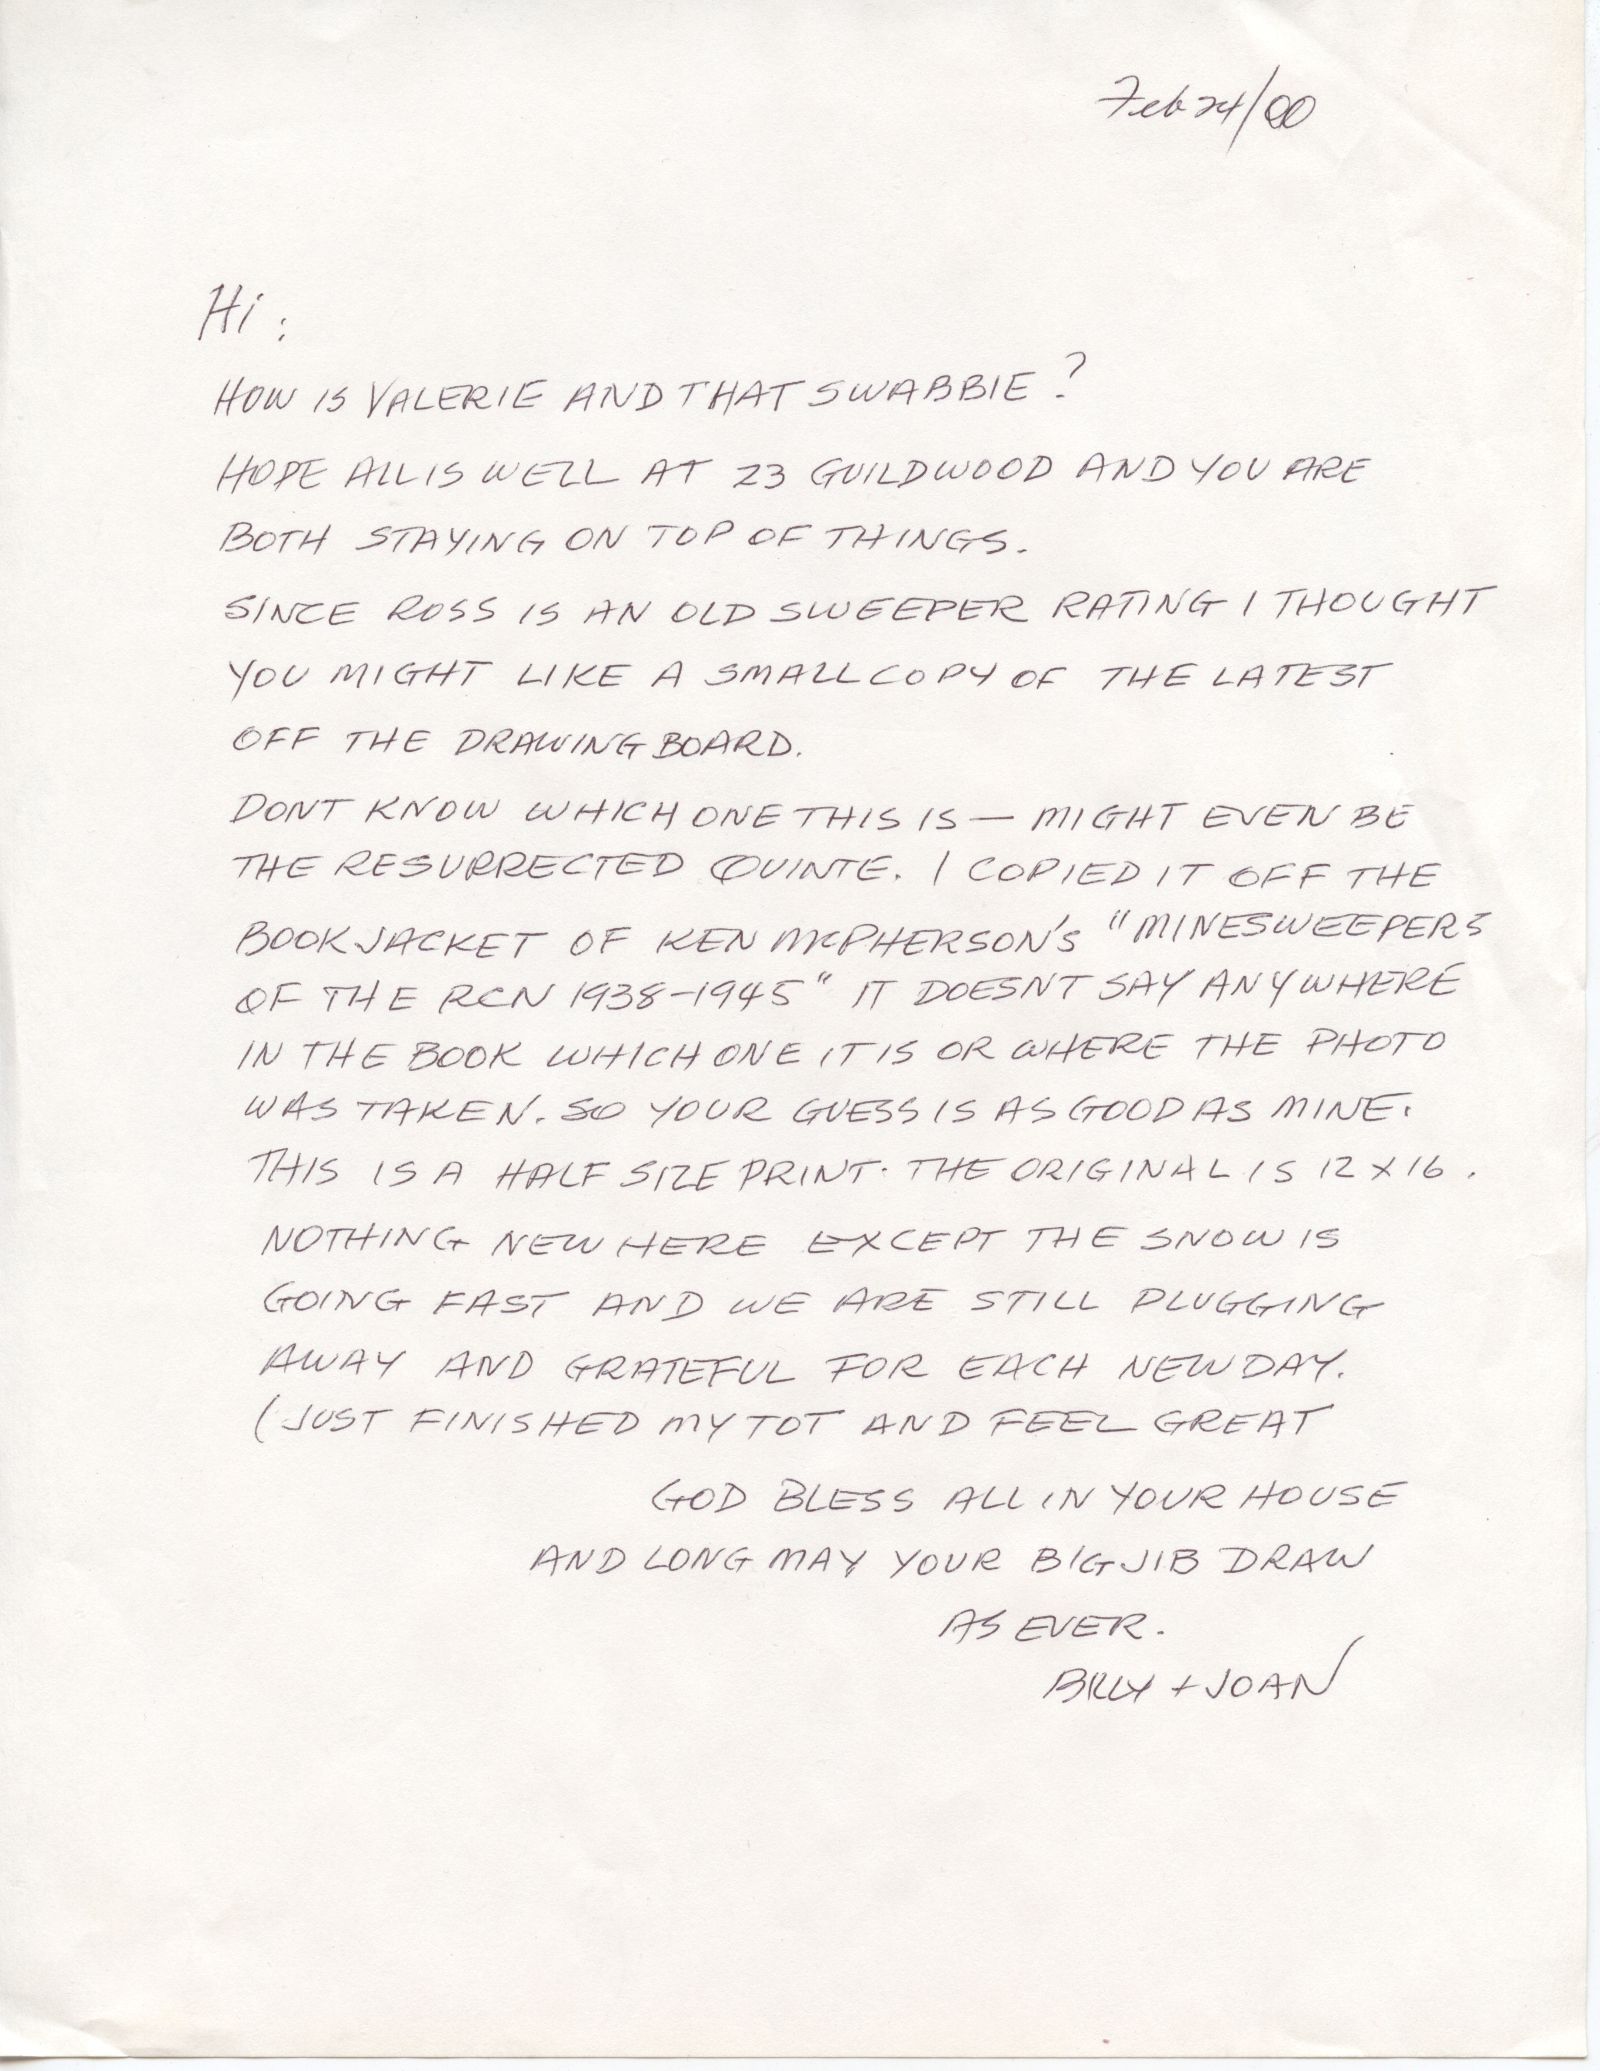 Feb 24/00
Hi :
HOW IS VALERIE AND THAT SWABBIE ?
HOPE ALL IS WELL AT 23 GUILDWOOD AND YOU ARE
BOTH STAYING ON TOP OF THINGS.
SINCE ROSS IS AN OLD SWEEPER RATING I THOUGHT
YOU MIGHT LIKE A SMALL COPY OF THE LATEST
OFF THE DRAWING BOARD.
DONT KNOW WHICH ONE THIS IS — MIGHT EVEN BE
THE RESURRECTED QUINTE. I COPIED IT OFF THE
BOOK JACKET OF KEN McPHERSON'S "MINESWEEPERS
OF THE RCN 1938-1945" IT DOESNT SAY ANYWHERE
IN THE BOOK WHICH ONE IT IS OR WHERE THE PHOTO
WAS TAKEN. SO YOUR GUESS IS AS GOOD AS MINE.
THIS IS A HALF SIZE PRINT. THE ORIGINAL IS 12 X 16.
NOTHING NEW HERE EXCEPT THE SNOW IS
GOING FAST AND WE ARE STILL PLUGGING
AWAY AND GRATEFUL FOR EACH NEW DAY.
(JUST FINISHED MY TOT AND FEEL GREAT
GOD BLESS ALL IN YOUR HOUSE
AND LONG MAY YOUR BIG JIB DRAW
AS EVER.
BILLY + JOAN